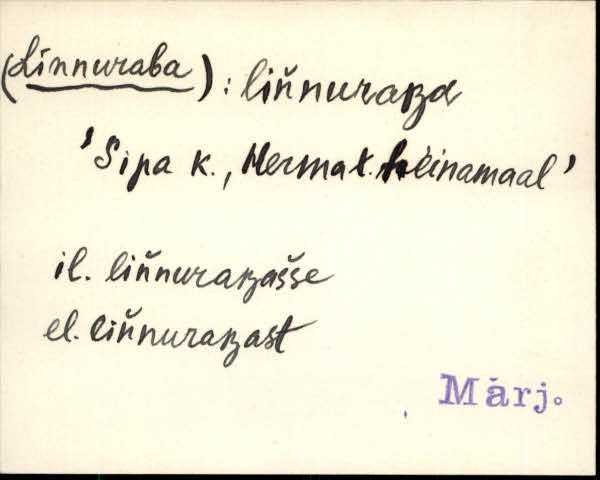 (Linnuraba) : liňnuraʙa
'Sipa k., Merma t. heinamaal'
il. liňnuraʙašse
el. liňnuraʙast
Märj.